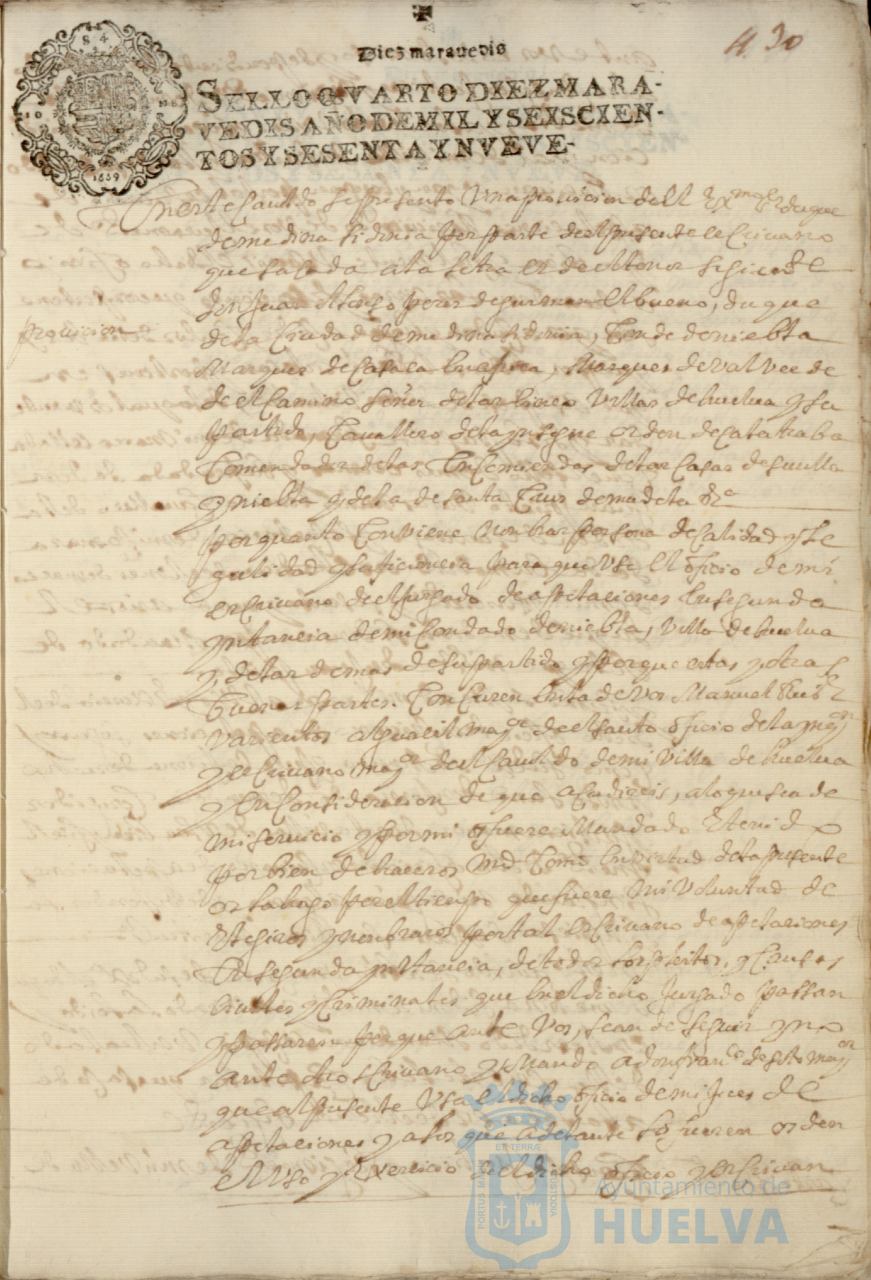 4. 30
Diez maravedis
SELLO QVARTO DIEZ MARA-
VEDIS AÑO DE MIL Y SEISCIEN-
TOS Y SESENTA Y NVEVE-
En este cauildo se presento Una prouicion del Exmo Sr duque
de medina sidonia por parte del presente escriuano
que sacada a la letra es del tenor siguiente
don Juan Alonso perez de gusman el bueno, duque
prouicion
de la Ciudad de medina sidonia, Conde de niebla
Marques de Casasa en africa, Marques de Valverde
de el Camino señor de las cinco Villas de huelua y su
partido, Cauallero de la ynsigne orden de Calatraba
Comendador de las Encomiendas de las Casas de seuilla
y niebla y de la de santa Cruz de mudela &a
por quanto Conviene nonbrar persona de Calidad y le
galidad y suficiencia para que Vse el oficio de mi
escriuano del Jusgado de apelaciones en segunda
ynstancia de mi Condado de niebla, Villa de huelua
y de las demas de su partido y porque estas y otras
buenas partes Concuren en la de vos Manuel
varientos alguacil mayor de el santo oficio de la ynqon
y escriuano mayor del cauildo de mi Villa de huelua
y En Consideracion de que acudireis, a lo que sea de
mi seruicio y por mi os fuere Mandado E tenido
por bien de haceros md Como en virtud de la presente
os la hago por el tiempo que fuere mi Voluntad de
Elegiros y nonbraros por tal escriuano de apelaciones
En segunda ynstancia, de todos los pleitos, y Causas
ciuiles y Criminales que en el dicho Jusgado passan
y passaren para que ante Vos, sean de seguir y no
ante otro escriuano y Mando a don franco de soto mayor
que al presente Vsa el dicho oficio de mi Jues de
apelaciones y a los que adelante lo fueren os den
el Vso y Exercicio del dicho oficio y Escriuan
PORTUS MARIS ET TERRÆ CUSTODIA
Ayuntamiento de
HUELVA